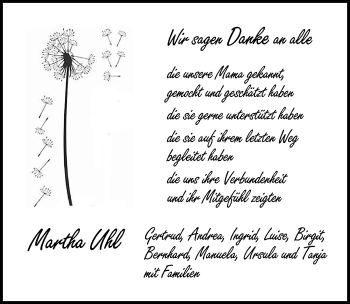 Wir sagen Danke an alle
die unsere Mama gekannt,
gemocht und geschätzt haben
die sie gerne unterstützt haben
die sie auf ihrem letzten Weg
begleitet haben
die uns ihre Verbundenheit
und ihr Mitgefühl zeigten
Martha Uhl
Gertrud, Andrea, Ingrid, Luise, Birgit,
Bernhard, Manuela, Ursula und Tanja
mit Familien